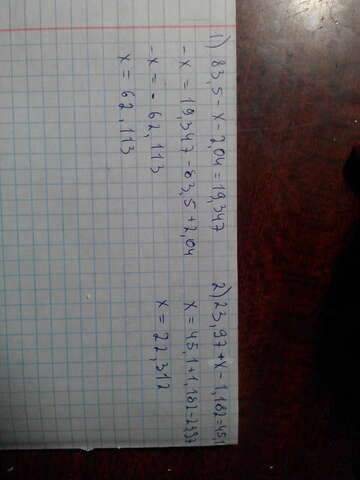 1) 83,5 - x - 2,04 = 19,347
-x = 19,347 - 83,5 + 2,04
-x = - 62,113
x = 62,113
2) 23,97 + x - 1,182 = 45,1
x = 45,1 + 1,182 - 23,97
x = 22,312